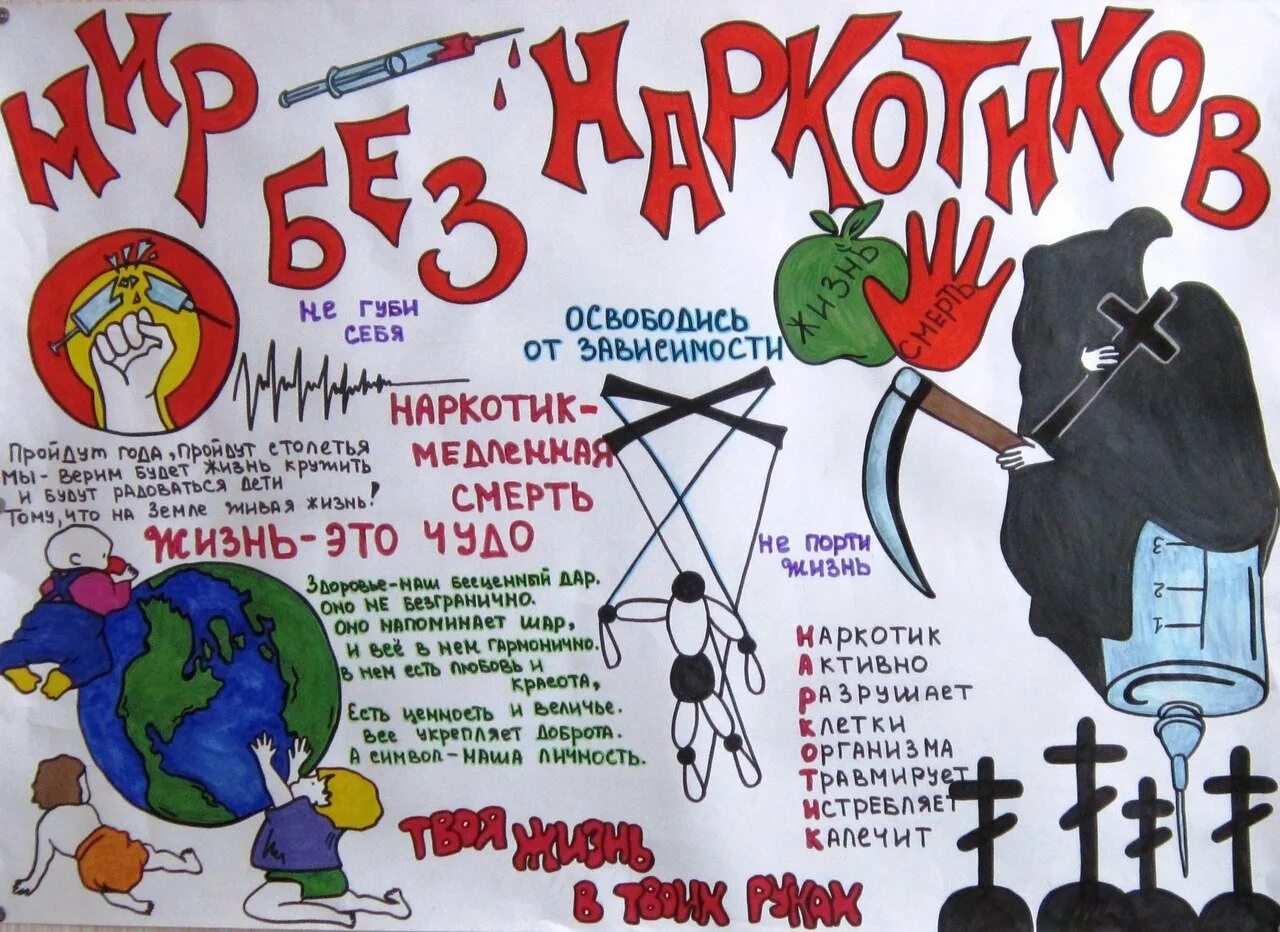 МИР БЕЗ НАРКОТИКОВ
НЕ ГУБИ
СЕБЯ
ОСВОБОДИСЬ
ОТ ЗАВИСИМОСТИ
ЖИЗНЬ
СМЕРТЬ
НАРКОТИК-
МЕДЛЕННАЯ
СМЕРТЬ
Пройдут года, пройдут столетья
Мы - верим будет жизнь кружить
и будут радоваться дети
Тому, что на Земле живая жизнь!
ЖИЗНЬ-ЭТО ЧУДО
Здоровье-наш бесценный дар.
Оно не безгранично.
Оно напоминает шар,
и всё в нем гармонично.
в нем есть любовь и
красота,
Есть ценность и величье.
Все укрепляет доброта.
А символ-наша личность.
НЕ ПОРТИ
ЖИЗНЬ
НАРКОТИК
АКТИВНО
РАЗРУШАЕТ
КЛЕТКИ
ОРГАНИЗМА
ТРАВМИРУЕТ
ИСТРЕБЛЯЕТ
КАЛЕЧИТ
3
2
1
ТВОЯ ЖИЗНЬ
В ТВОИХ РУКАХ